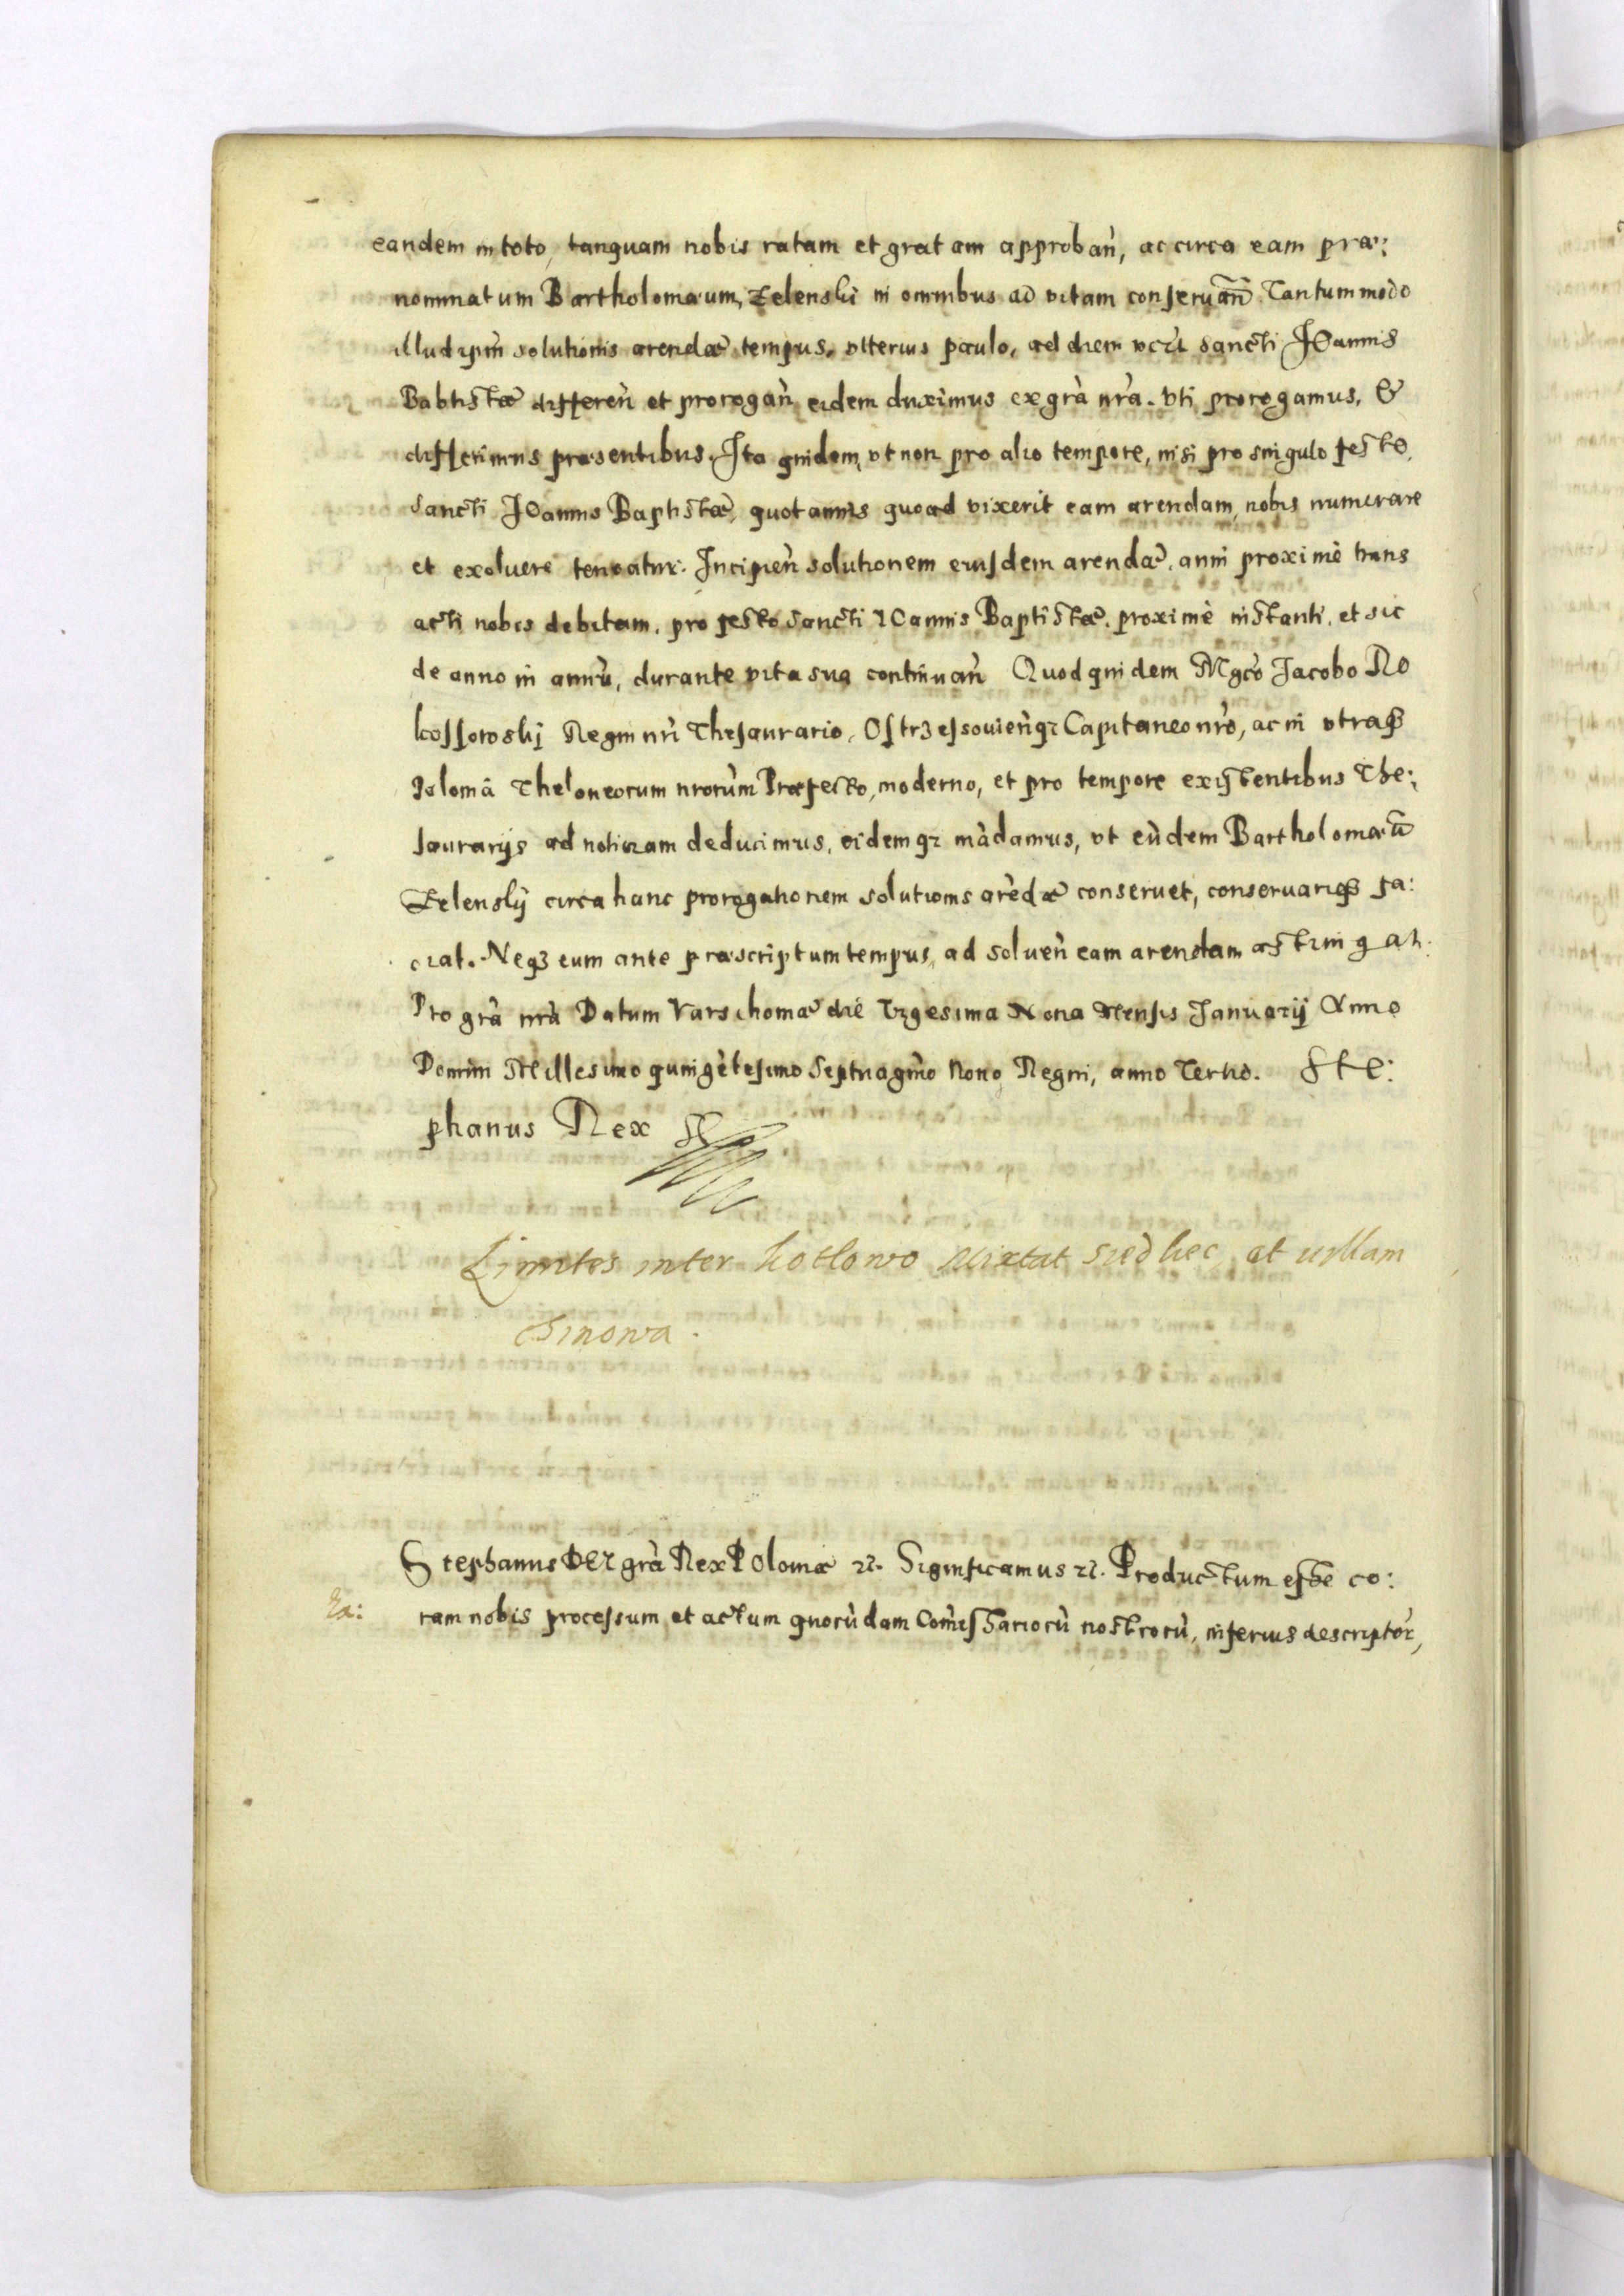 eandem in toto, tanquam nobis ratam et gratam approbañ, ac circa eam præ:
nominatum Bartholomæum, Zelenski in omnibus ad vitam conseruañ. Tantummodo
illud ipm̀ solutionis arendæ tempus, vlterius paulo, ad diem vcꝫ sancti Joannis
Babtistæ differen̄ et prorogan̄ eidem duximus ex grà nrà. Vti prorogamus, &
differimus præsentibus. Ita quidem, vt non pro alio tempore, nisi pro singulo festo,
Sancti Joannis Baptistæ, quotannis quoad vixerit eam arendam, nobis numerare
et exoluere teneatur. Incipien̄ solutionem eiusdem arendæ, anni proximè trans
acti nobis debitam, pro festo sancti Ioannis Baptistæ, proximè instanti, et sic
de anno in annù, durante vita sua continuan̄ Quod quidem Mgcò Jacobo Ro
kossowskj Regni nrì Thesaurario, Ostrzessouien̄qꝫ Capitaneo nrò, ac in vtraqꝫ
Poloniâ Theloneorum nrorùm Præfecto, moderno, et pro tempore existentibus The:
saurarijs ad noticiam deducimus, eidemqꝫ màdamus, vt eùdem Bartholomæū
Zelenskij circa hanc prorogationem solutionis arèdæ conseruet, conseruariqꝫ fa:
ciat. Neqꝫ eum ante præscriptum tempus, ad soluen̄ eam arendam astringat.
Pro grà nrà Datum Varschoviæ die Vigesima Nona Mensis Januarij Anno
Domini Millesimo quingètesimo Septuagmò Nono Regni, anno Tertio. Ste:
phanus Rex
Limites inter Kotlowo
et villam
Stephanus DEI grà Rex Poloniæ ꝛc. Significamus ꝛc. Productum esse co:
ram nobis processum et actum quorùdam Comìssariorù nostrorù, inferius descriptòr,